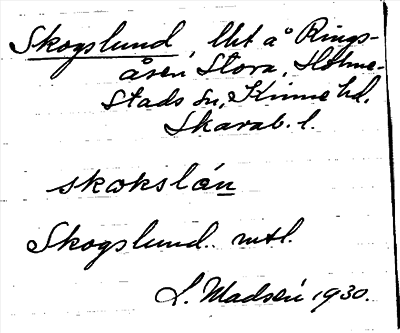 Skogslund, lht å Rings-
åsen Stora, Holme-
stads sn, Kinne hd,
Skarab. l.
skɷkslón
Skogslund. mtl.
L. Madsén 1930.